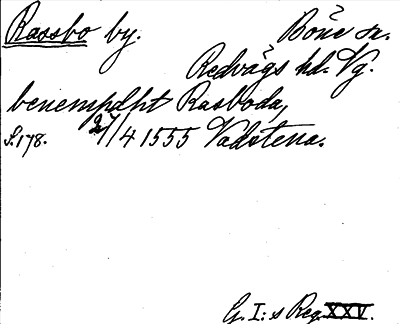 Rassbo by. Böne sn.
Redvägs hd. Vg.
benempdht Rasboda,
S. 178. 27/4 1555 Vadstena.
G. I:s Reg. XXV.